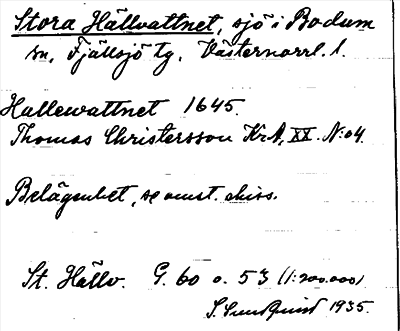 Stora Hällvattnet, sjö i Bodum
sn, Fjällsjö tg. Västernorrl. l.
Hallewattnet 1645.
Thomas Christersson KrA, XX. N:o 4.
Belägenhet, se omst. skiss.
St. Hällv. G. 60 o. 53 (1:200.000)
1935.